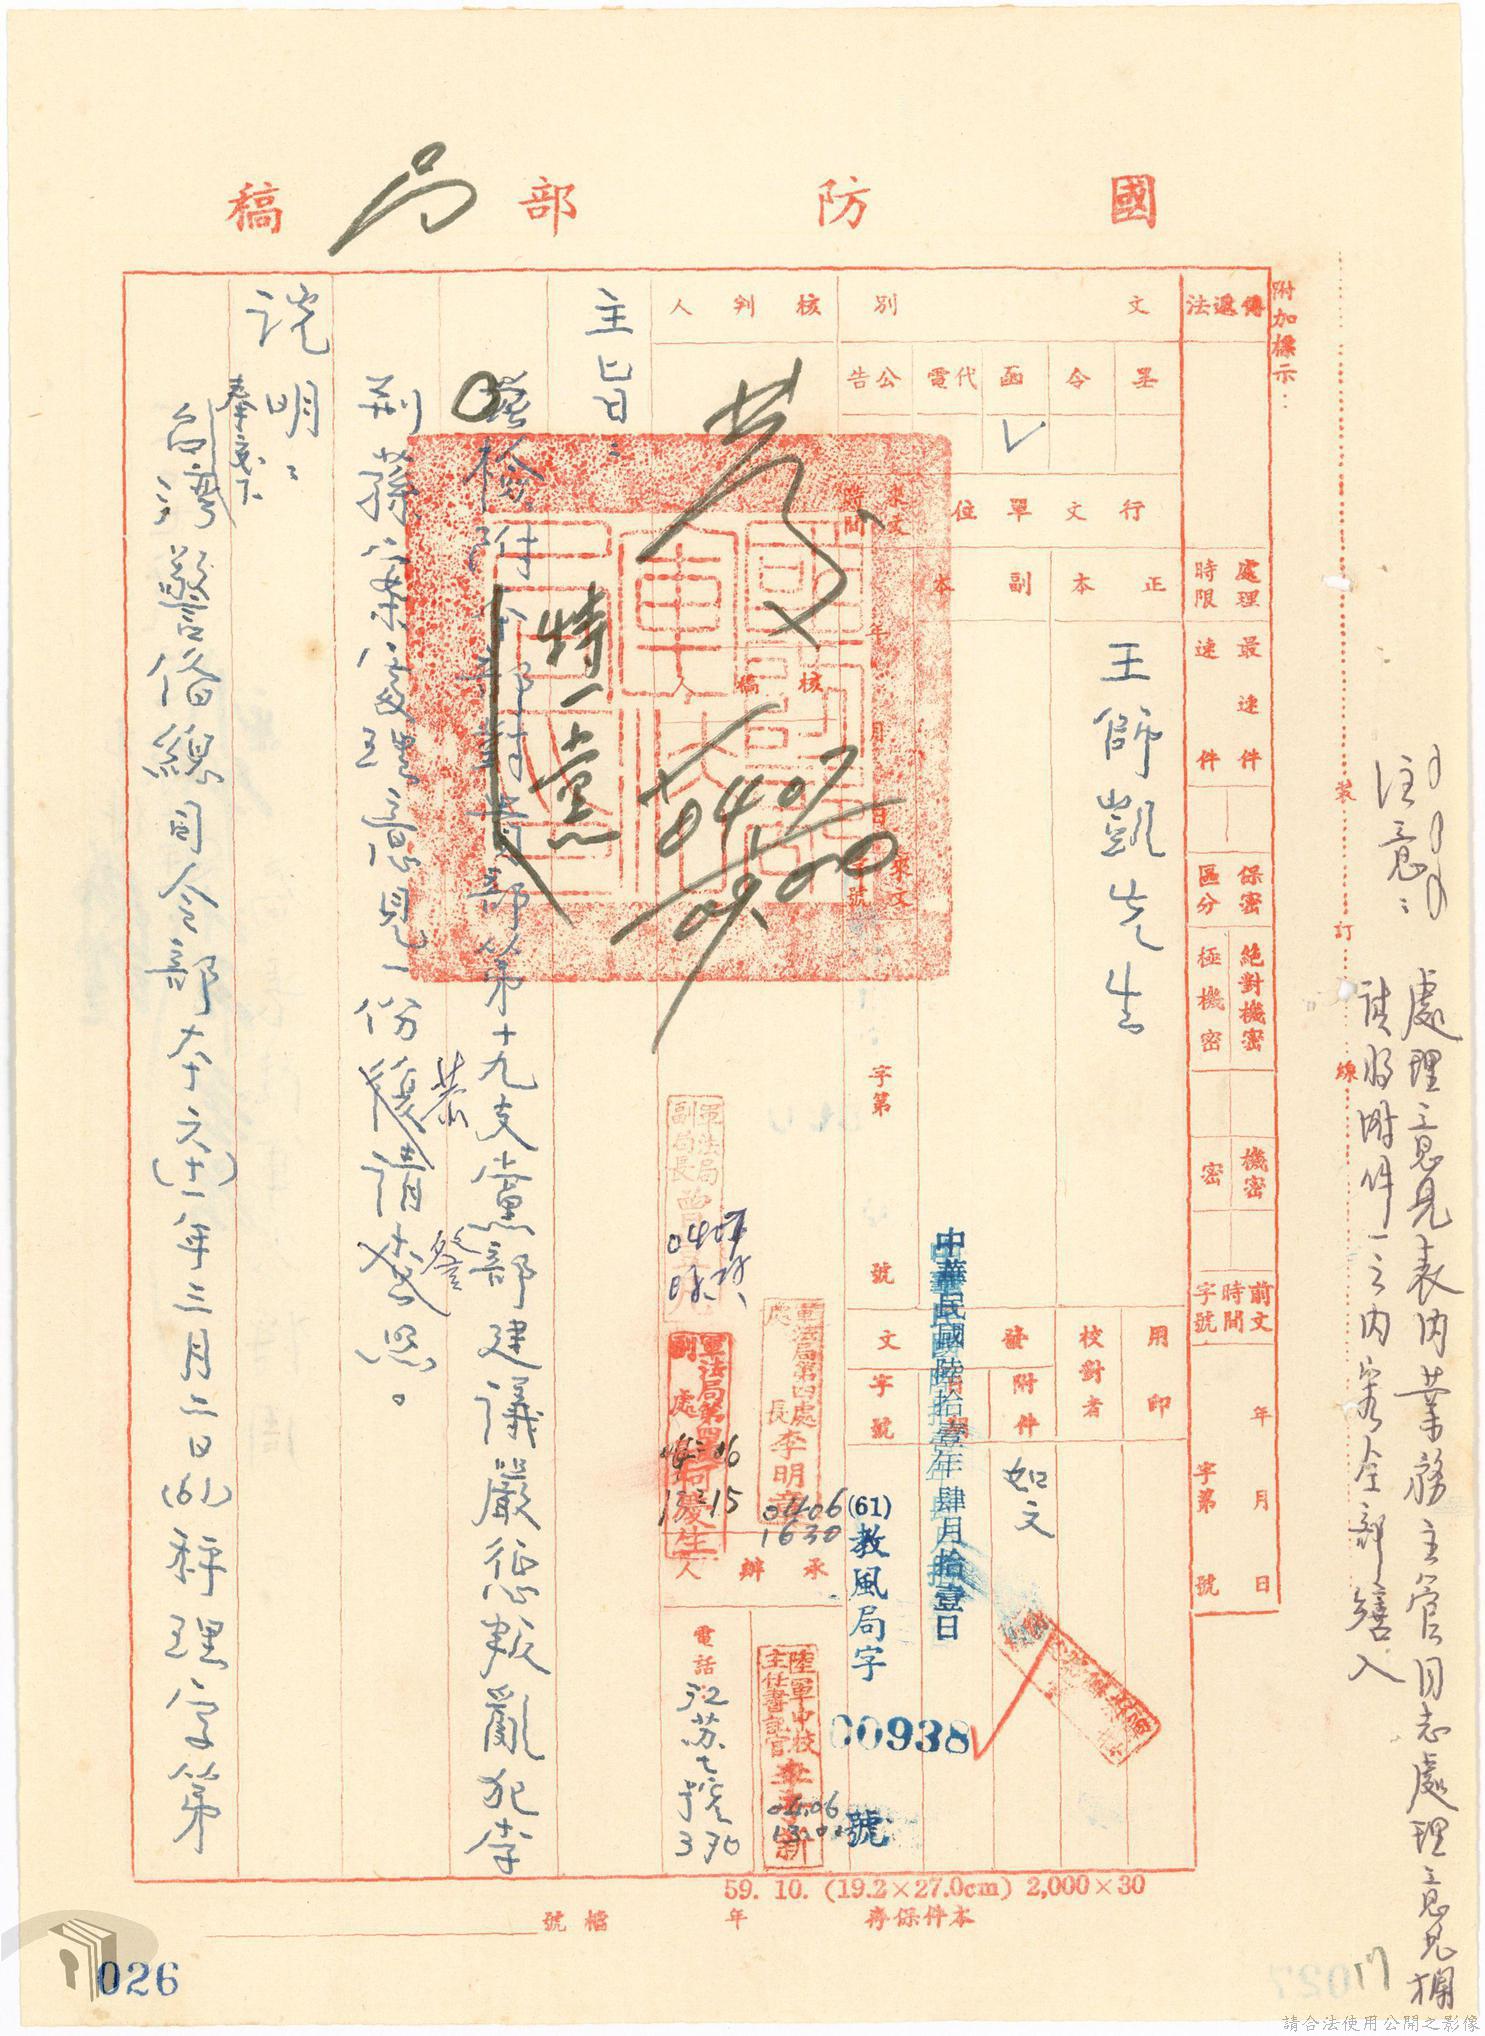 國防部局稿
附加標示：
傳遞法
處理時限
最速件
速件
保密區分
絕對機密
極機密
機密
密
前文時間字號
年月日
字第號
文別
呈
令
函
代電
公告
✓
行文單位
正本
副本
王師凱先生
來文時間
年月日
來文字號
字第
號
用印
校對者
發文
附件
如文
字號
中華民國陸拾壹年肆月拾壹日
(61)教風局字
00938
號
核判人
核稿人
0407
0900
特一黨
軍法局副局長
軍法局第四處處長李明章
0406
1630
軍法局第四處副處長何慶生
1315
承辦人
陸軍中校主任書記官李子新
0406
電話
江蘇七號
370
主旨：
檢附本部對貴部第十九支黨部建議嚴懲叛亂犯李
荊蓀案處理意見一份恭請鑒照。
說明：
奉交下
台灣警備總司令部六十六(六十一)年三月二日(61)秤理字第
注意：
處理意見表內業務主管同志處理意見欄
請將附件一之內容全部繕入
裝
訂
線
59. 10. (19.2×27.0cm) 2,000×30
本件保存
年
檔號
026
17
請合法使用公開之影像